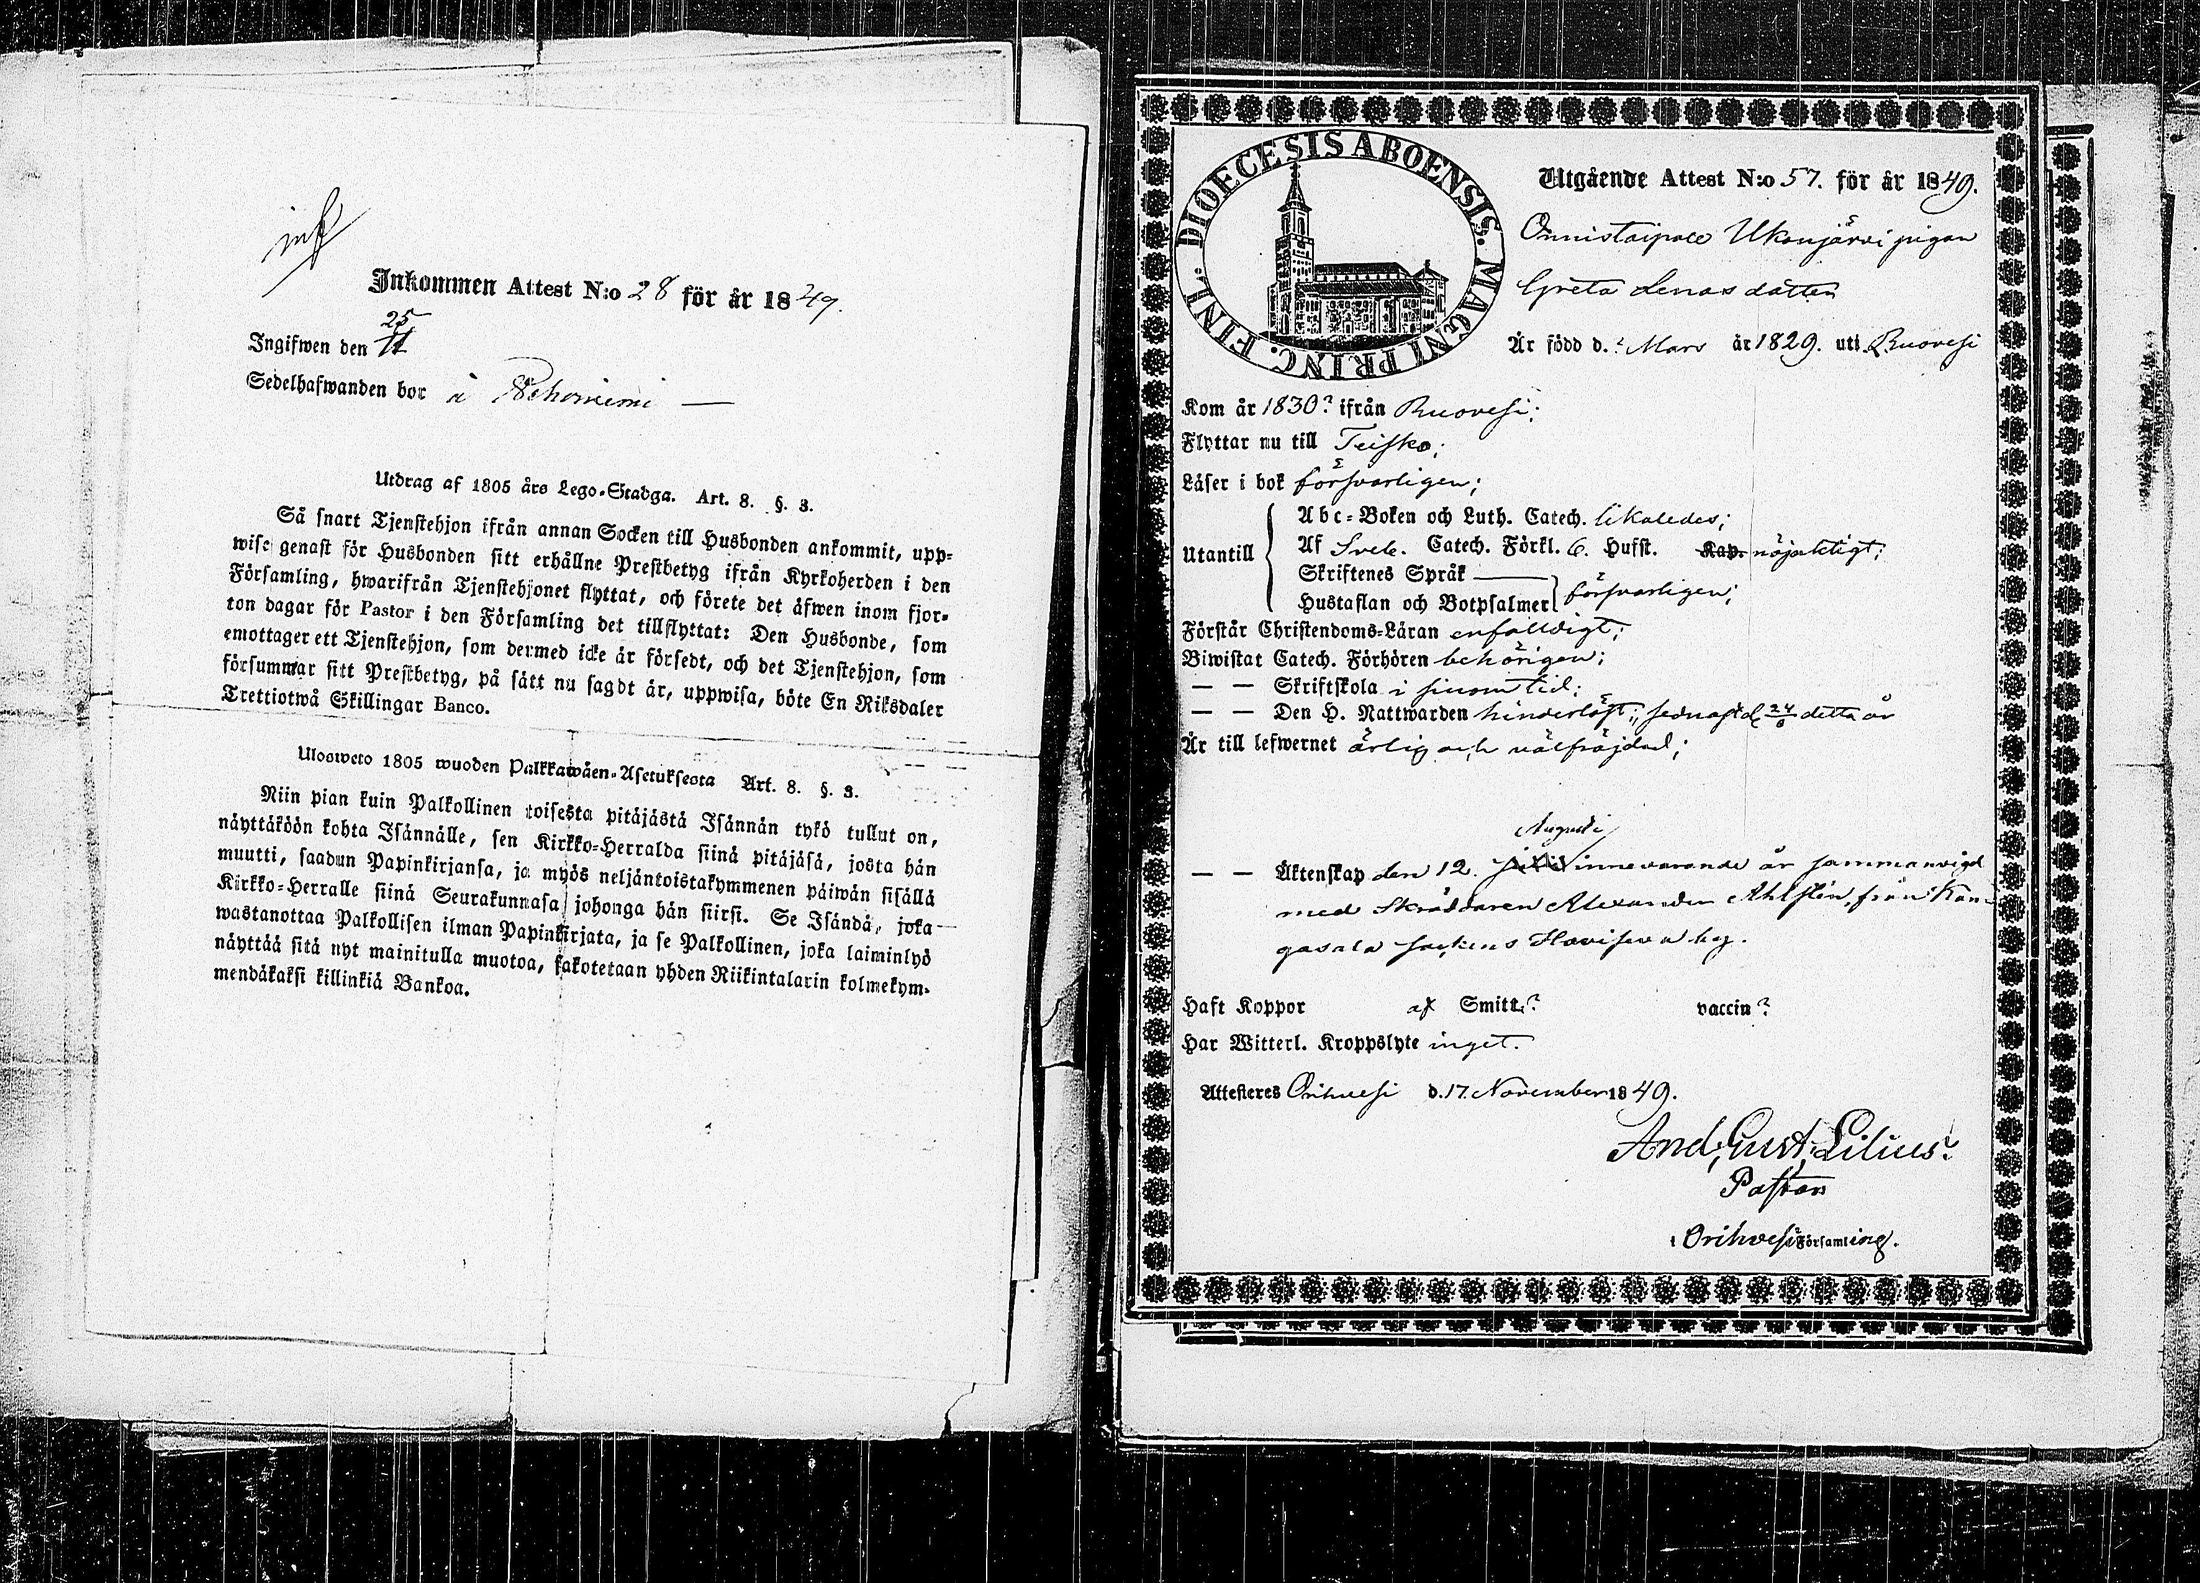 inf
Inkommen Attest N:o 28 för år 1849.
Ingifwen den 25/11
Sedelhafwanden bor i
Utdrag af 1805 års Lego-Stadga. Art. 8. §. 3.
Så snart Tjenstehjon ifrån annan Socken till Husbonden ankommit, upp-
wise genast för Husbonden sitt erhållne Prestbetyg ifrån Kyrkoherden i den
Församling, hwarifrån Tjenstehjonet flyttat, och förete det äfwen inom fjor-
ton dagar för Pastor i den Församling det tillflyttat: Den Husbonde, som
emottager ett Tjenstehjon, som dermed icke är försedt, och det Tjenstehjon, som
försummar sitt Prestbetyg, på sätt nu sagdt är, uppwisa, böte En Riksdaler
Trettiotwå Skillingar Banco.
Ulosweto 1805 wuoden Palkkawäen-Asetuksesta Art. 8. §. 3.
Niin pian kuin Palkollinen toisesta pitäjästä Isännän tykö tullut on,
näyttäköön kohta Isännälle, sen Kirkko-Herralda siinä pitäjäsä, josta hän
muutti, saadun Papinkirjansa, ja myös neljäntoistakymmenen päiwän sisällä
Kirkko-Herralle siinä Seurakunnasa johonga hän siirsi. Se Isändä, joka
wastanottaa Palkollisen ilman Papinkirjata, ja se Palkollinen, joka laiminlyö
näyttää sitä nyt mainitulla muotoa, sakotetaan yhden Riikintalarin kolmekym-
mendäkaksi killinkiä Bankoa.
DIOECESIS ABOENSIS. MAGNI PRINC. FINL.
Utgående Attest N:o 57. för år 1849.
Onnistaipale Ukonjärvi pigan
Greta Lenas dotter
Är född d. ? Mars år 1829. uti Ruovesi
Kom år 1830? ifrån Ruovesi;
Flyttar nu till Teisko;
Läser i bok försvarligen;
Utantill
Abc-Boken och Luth. Catech. likaledes;
Af Sveb. Catech. Förkl. 6. Hufst. Kap. nöjaktigt;
Skriftenes Språk
Hustaflan och Botpsalmer försvarligen;
Förstår Christendoms-Läran enfaldigt;
Biwistat Catech. Förhören behörigen;
— — Skriftskola i sinom tid;
— — Den H. Nattwarden hinderlöst; sednast d. 24/6 detta år
Är till lefwernet ärlig och välfrejdad;
Augusti
— — Äktenskap den 12. innevarande år sammanvigd
med Skräddaren Alexander Ahlsten, från Kan-
gasala sockens Haviseva by.
Haft Koppor af Smitt? vaccin?
Har Witterl. Kroppslyte inget.
Attesteras Orihvesi d. 17. November 1849.
And. Gust. Lilius.
Pastor
i Orihvesi Församling.